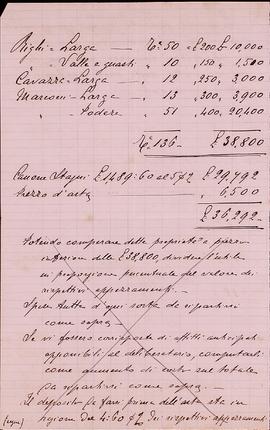 Righi - Larga — T.e 50 " £200 £ 10,000
" Valle e guasti " 10 " 150 " 1,500
Cavazza - Larga — " 12 " 250 " 3,000
Marconi - Larga — " 13 " 300 " 3,900
" Podere " 51 " 400 " 20,400
T.e 136 — £38,800
Canone Stagni £1489:60 al 5% £29,792
Prezzo d'asta " 6,500
£36,292
Potendo comperare dette proprietà a prezzo
inferiore delle £38,800, dividere l'utile
in proporzione percentuale del valore dei
rispettivi appezzamenti —
Spese tutte d'ogni sorta da ripartirsi
come sopra —
Se vi fossero corrisposte di affitti anticipati
opponibili al deliberatario, computarle
come aumento di costo sul totale
da ripartirsi come sopra. —
Il deposito da farsi prima dell'asta sta in
ragione del 4:60 % dei rispettivi appezzamenti
(segue)